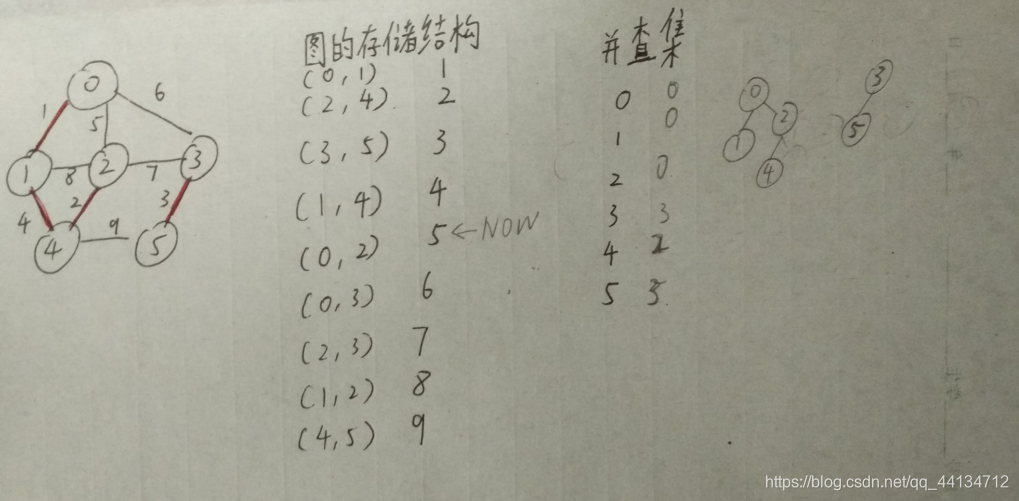 图的存储结构
并查集
(0,1) 1
(2,4) 2
(3,5) 3
(1,4) 4
(0,2) 5 ←NOW
(0,3) 6
(2,3) 7
(1,2) 8
(4,5) 9
0 0
1 0
2 0
3 3
4 2
5 3
0
6
1
5
1
8
2
7
3
4
2
3
4
9
5
0
1
2
4
3
5
https://blog.csdn.net/qq_44134712